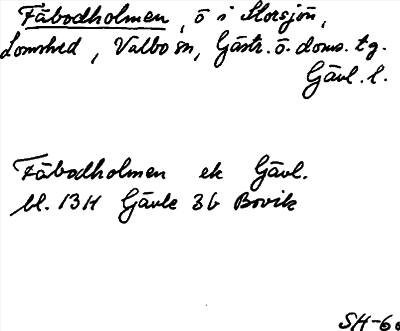 Fäbodholmen, ö i Storsjön,
Lomshed, Valbo sn, Gästr. ö. doms. tg.
Gävl. l.
Fäbodholmen ek Gävl.
bl. 13H Gävle 3b Bovik
SH-60